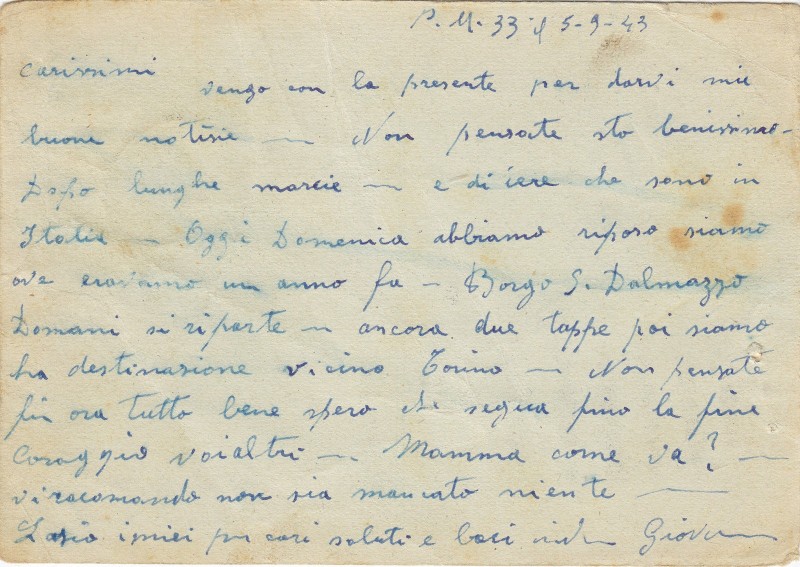 P. M. 33 il 5-9-43
Carissimi
vengo con la presente per darvi mie
buone notisie — Non pensate sto benissimo -
Dopo lunghe marcie — e di iere che sono in
Italia — Oggi Domenica abbiamo riposo siamo
ove eravamo un anno fa — Borgo S. Dalmazzo
Domani si riparte — ancora due tappe poi siamo
ha destinasione vicino Torino — Non pensate
fin ora tutto bene spero che segua fino la fine
Coraggio voialtri — Mamma come va? —
vi racomando non sia mancato niente —
Lasio i miei più cari saluti e baci Giovanni